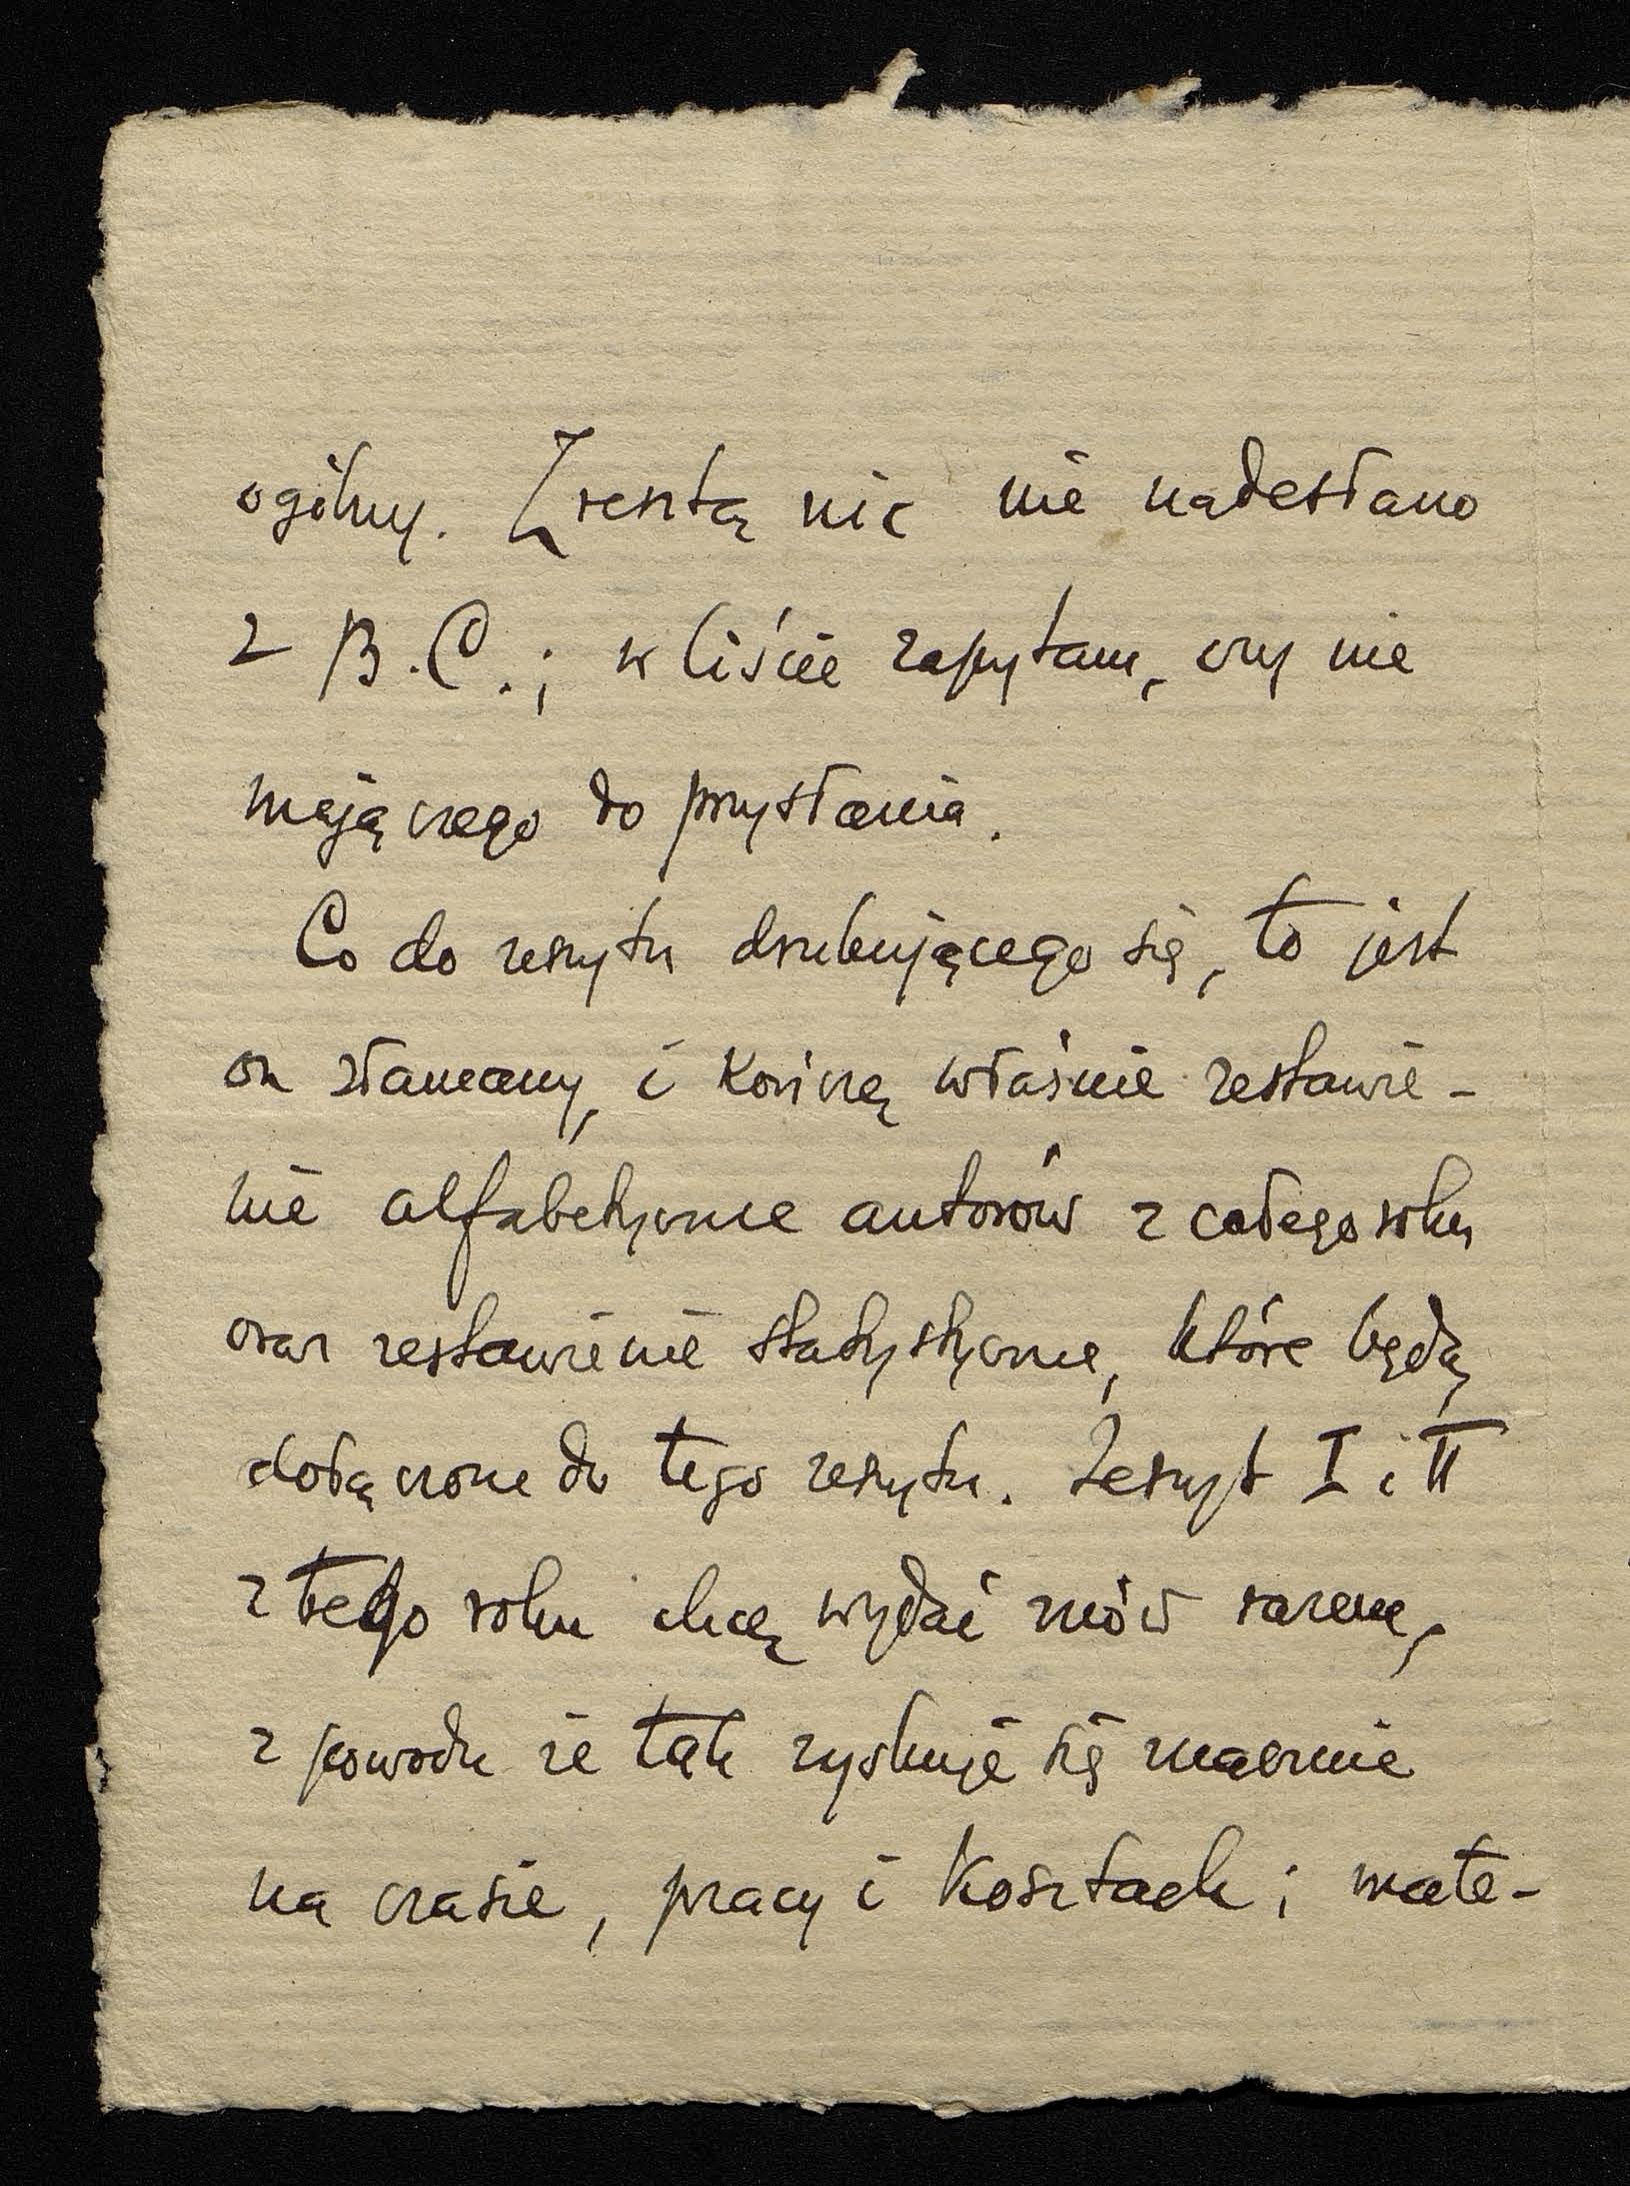 ogólny. Zresztą nic nie nadesłano
z B.C.; w liście zapytam, czy nie
mają czego do przysłania.
Co do zeszytu drukującego się, to jest
on złamany, i kończę właśnie zestawie-
nie alfabetyczne autorów z całego roku
oraz zestawienie statystyczne, które będą
dołączone do tego zeszytu. Zeszyt I i II
z tego roku chcę wydać znów razem,
z powodu że tak zyskuje się znacznie
na czasie, pracy i kosztach; mate-